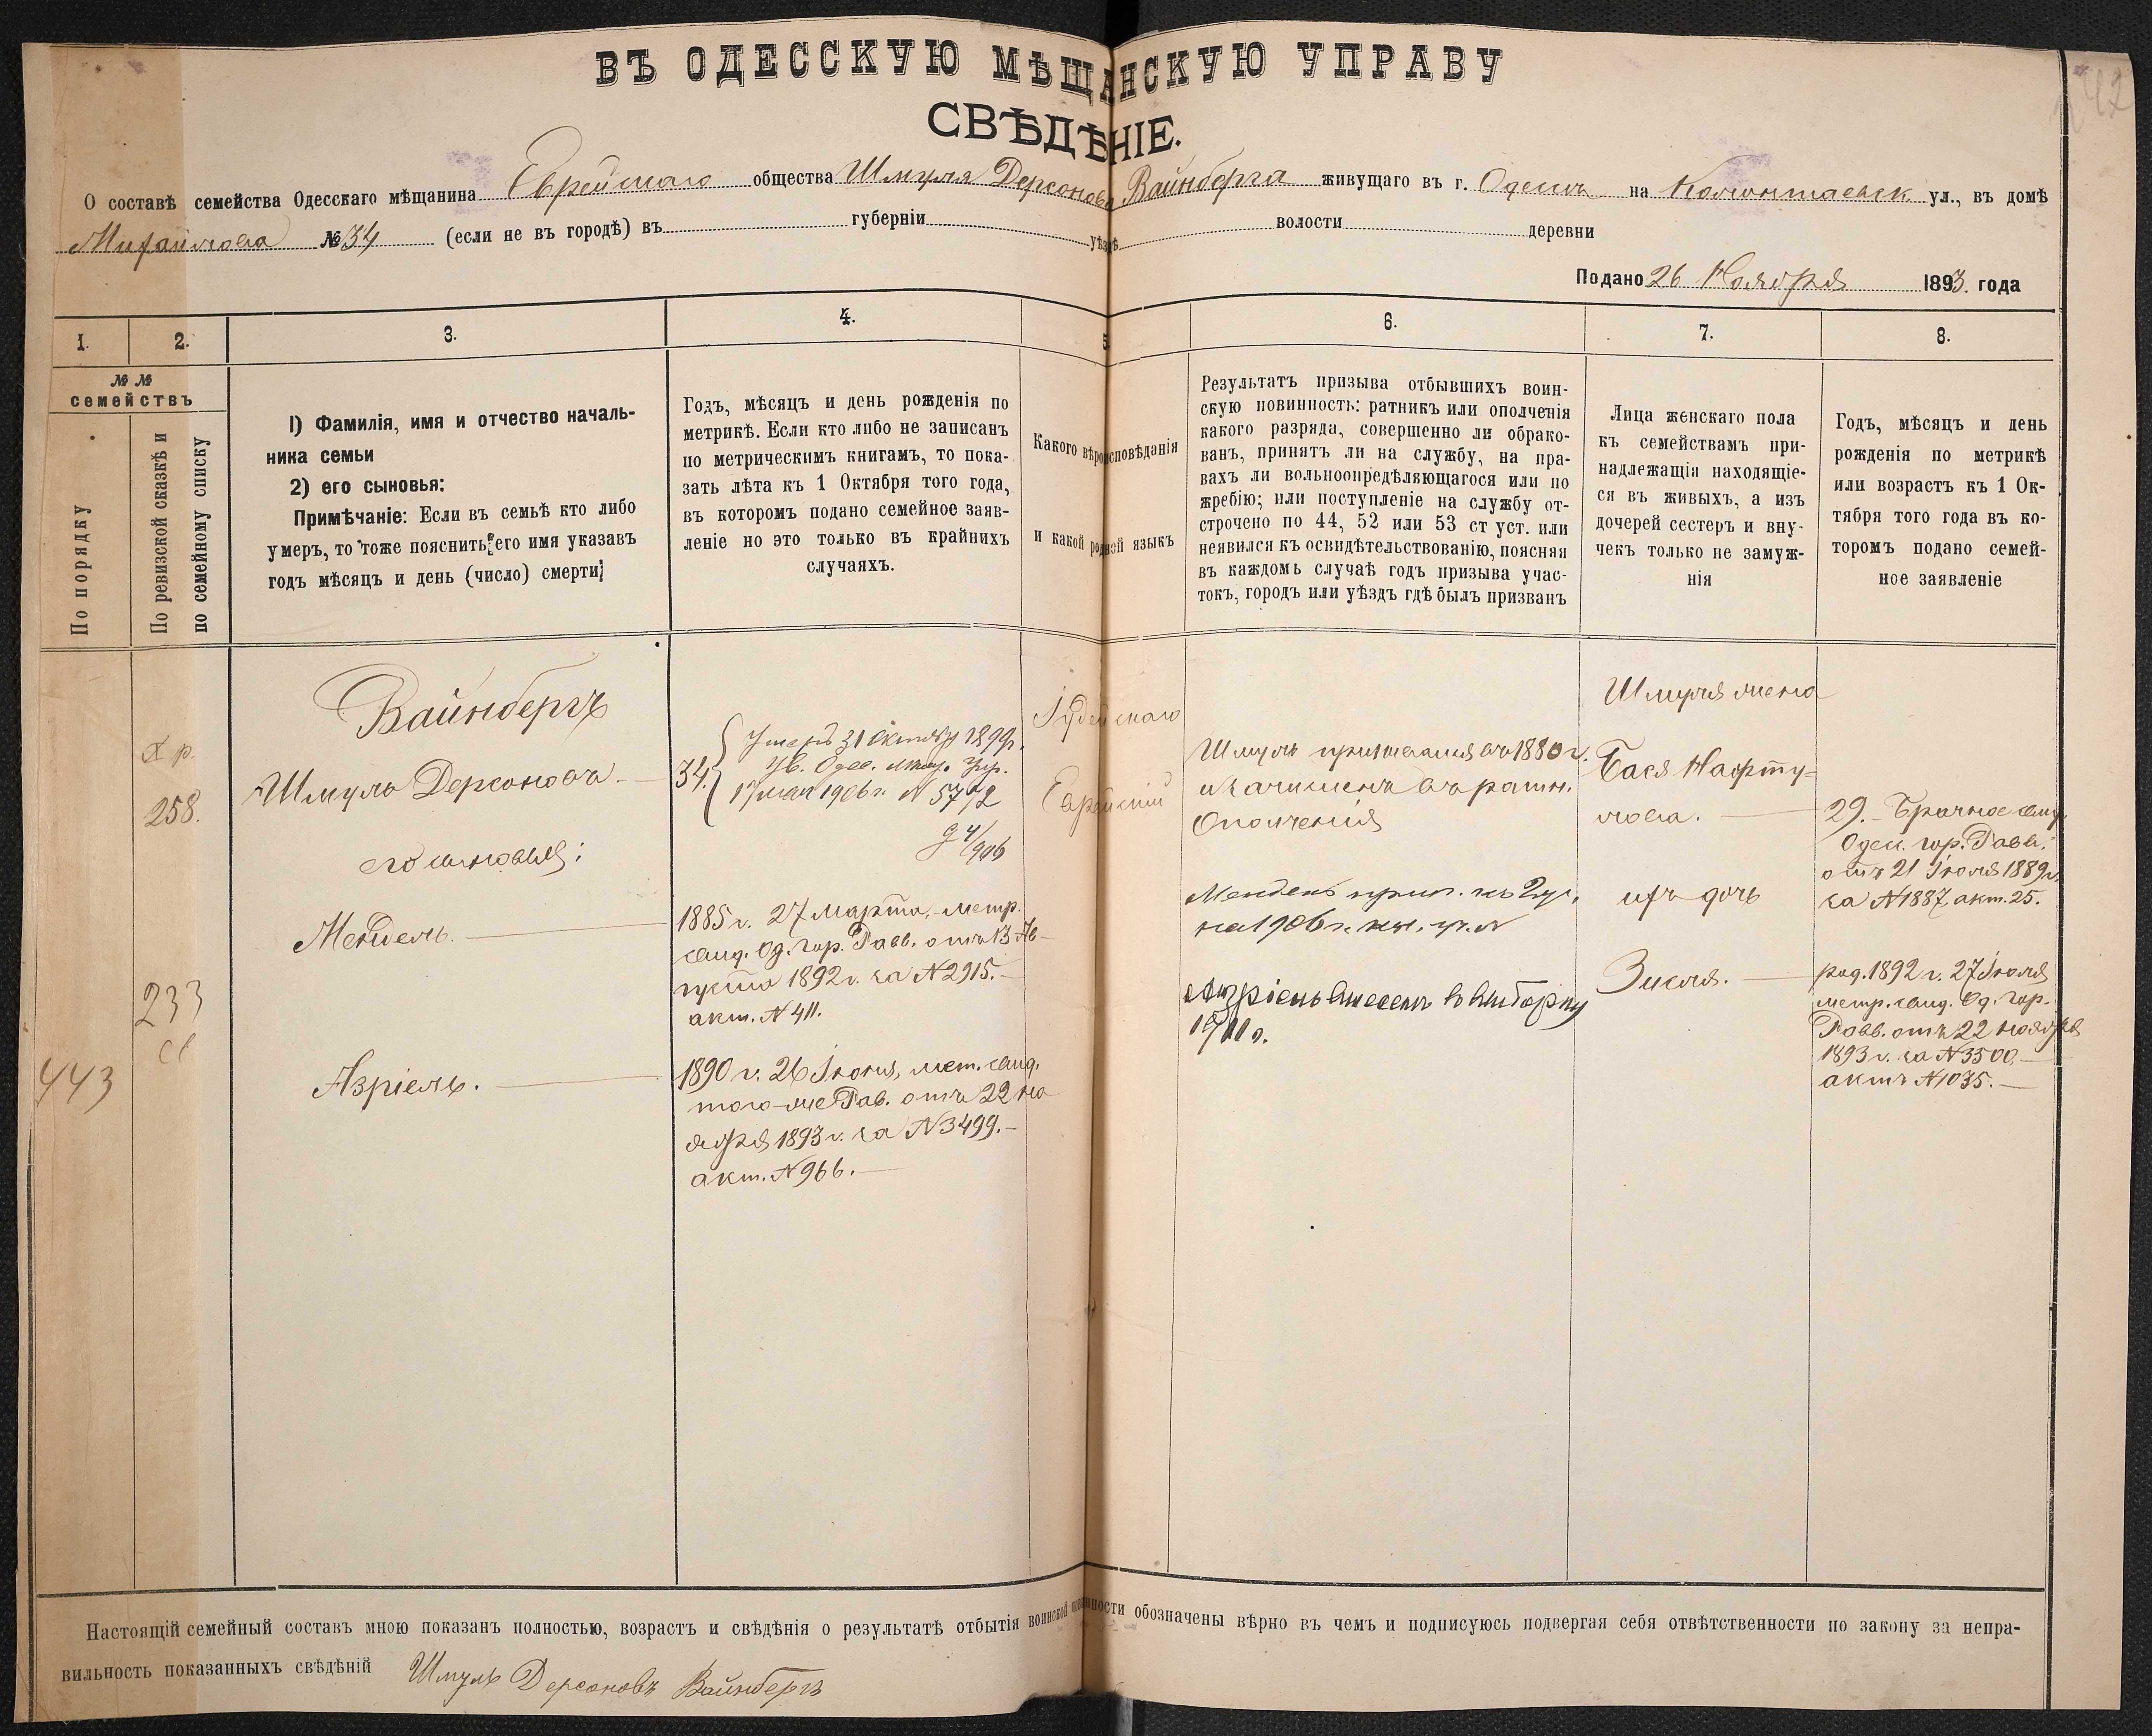 ВЪ ОДЕССКУЮ МѢЩАНСКУЮ УПРАВУ
СВѢДѢНІЕ.
О составѣ семейства Одесскаго мѣщанина Еврейскаго общества Шмуля Дерсонова Вайнберга живущаго въ г. Одессѣ на Колонтаевск ул., въ домѣ
Михайлова № 34 (если не въ городѣ) въ губерніи уѣздѣ волости деревни
Подано 26 Ноября 1893 года
1. 2. 3. 4. 5 6. 7. 8.
№ №
семействъ
По порядку
По ревизской сказкѣ и
по семейному списку
1) Фамилія, имя и отчество началь-
ника семьи
2) его сыновья:
Примѣчаніе: Если въ семьѣ кто либо
умеръ, то тоже пояснить его имя указавъ
годъ мѣсяцъ и день (число) смерти
Годъ, мѣсяцъ и день рожденія по
метрикѣ. Если кто либо не записанъ
по метрическимъ книгамъ, то пока-
зать лѣта къ 1 Октября того года,
въ которомъ подано семейное заяв-
леніе но это только въ крайнихъ
случаяхъ.
Какого вѣроисповѣданія
и какой родной языкъ
Результатъ призыва отбывшихъ воин-
скую повинность: ратникъ или ополченія
какого разряда, совершенно ли обрако-
ванъ, принятъ ли на службу, на пра-
вахъ ли вольноопредѣляющагося или по
жребію; или поступленіе на службу от-
строчено по 44, 52 или 53 ст уст. или
неявился къ освидѣтельствованію, поясняя
въ каждомъ случаѣ годъ призыва учас-
токъ, городъ или уѣздъ гдѣ былъ призванъ
Лица женскаго пола
къ семействамъ при-
надлежащія находящіе-
ся въ живыхъ, а изъ
дочерей сестеръ и вну-
чекъ только не замуж-
нія
Годъ, мѣсяцъ и день
рожденія по метрикѣ
или возрастъ къ 1 Ок-
тября того года въ ко-
торомъ подано семей-
ное заявленіе
258.
233
443
Вайнбергъ
Шмуль Дерсоновъ.
его сыновья:
Мендель.
Азріель.
34.
Умеръ 31 октября 1899г.
ув. Одес. мѣщ. Упр.
17 мая 1906 г. N 5772
4/906
1885 г. 27 Марта, метр.
свид. Од. гор. Равв. отъ 13 Ав-
густа 1892 г. за N 2915.
акт. N 411.
1890 г. 26 Іюня, мет. свид.
того-же Рав. отъ 22 но
ября 1893 г. за N 3499.
акт. N 966.
Іудейскаго
Еврейскій
Шмуль призывался въ 1880 г.
и зачисленъ въ ратн.
Ополченія
Мендель
на 1906 г.
Азріель внесенъ въ выборку
1911 г.
Шмуля жена
Бася Нафту-
лова.
ихъ дочь
Зисля.
29. Брачное свид.
Одес. гор. Равв.
отъ 21 Іюля 1889 г.
за N 1887, акт. 25.
род. 1892 г. 27 Іюля
метр. свид. Од. гор.
Равв. отъ 22 ноября
1893 г. за N 3500.
актъ N 1035.
Настоящій семейный составъ мною показанъ полностью, возрастъ и свѣдѣнія о результатѣ отбытія воинской повинности обозначены вѣрно въ чемъ и подписуюсь подвергая себя отвѣтственности по закону за непра-
вильность показанныхъ свѣдѣній Шмуль Дерсоновъ Вайнбергъ